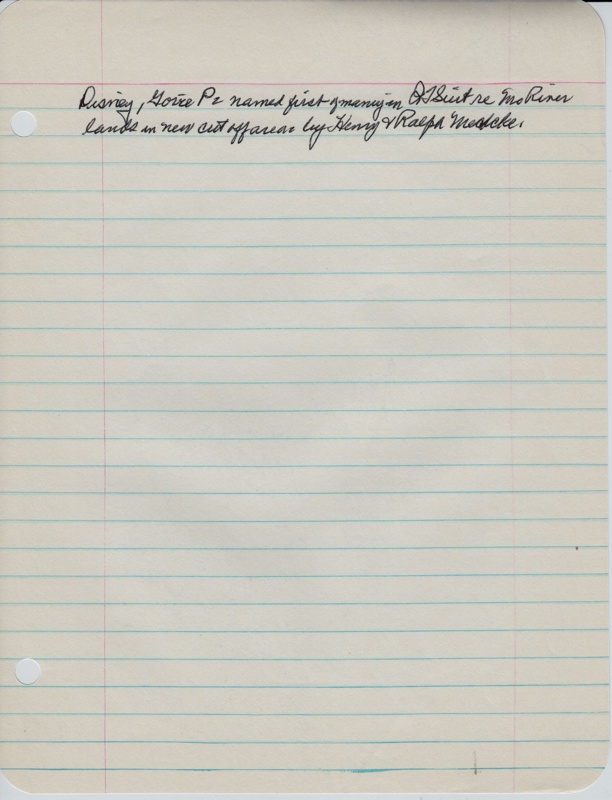 Disney, P = named first of many in QT Suit re Mo River
lands in new cut off areas by Henry & Ralph